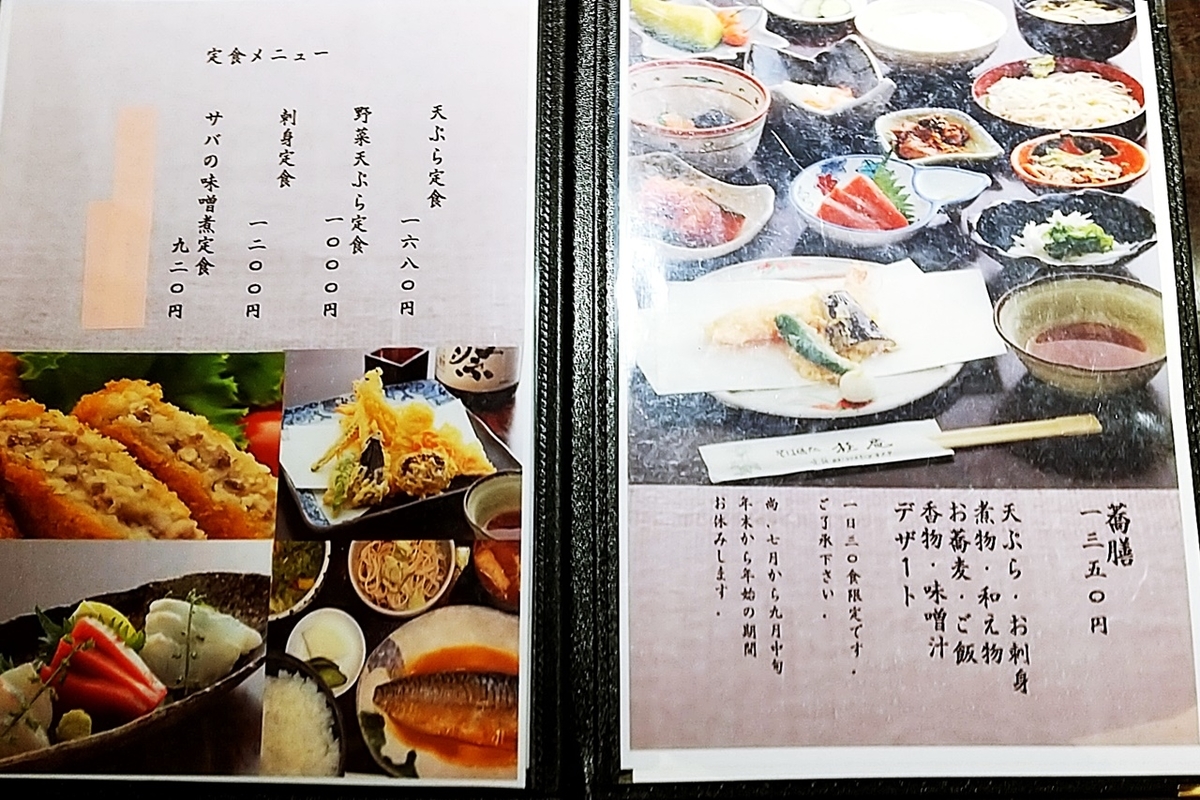 定食メニュー
天ぷら定食
一六八〇円
野菜天ぷら定食
一〇〇〇円
刺身定食
一二〇〇円
サバの味噌煮定食
九二〇円
蕎膳
一三五〇円
天ぷら・お刺身
煮物・和え物
お蕎麦・ご飯
香物・味噌汁
デザート
一日三〇食限定です.
ご了承下さい.
尚、七月から九月中旬
年末から年始の期間
お休みします.